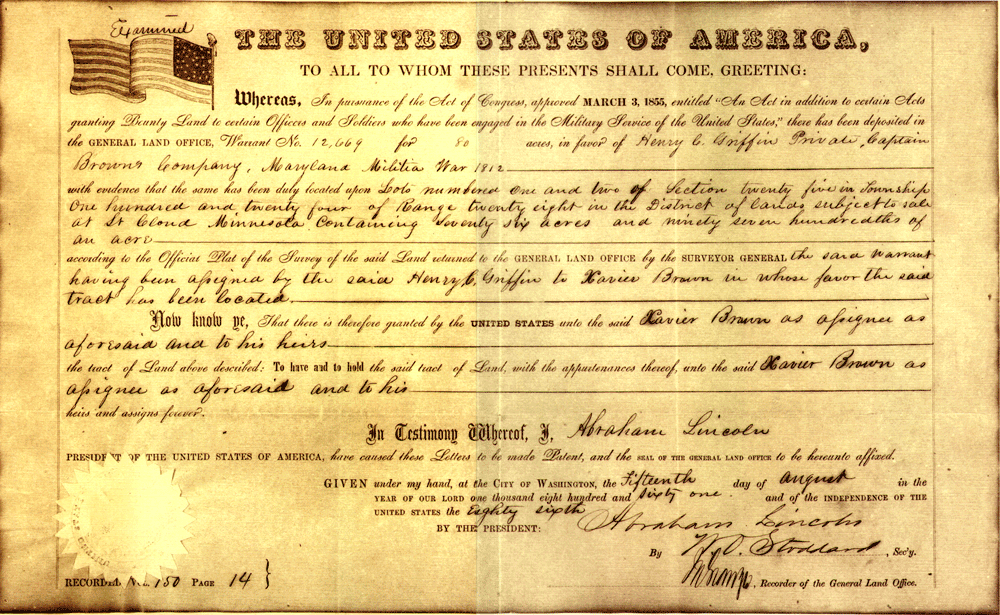 Examined
THE UNITED STATES OF AMERICA,
TO ALL TO WHOM THESE PRESENTS SHALL COME, GREETING:
Whereas, In pursuance of the Act of Congress, approved MARCH 3, 1855, entitled "An Act in addition to certain Acts
granting Bounty Land to certain Officers and Soldiers who have been engaged in the Military Service of the United States," there has been deposited in
the GENERAL LAND OFFICE, Warrant No. 12,669 for 80 acres, in favor of Henry C. Griffin Private, Captain
Browns Company, Maryland Militia War 1812
with evidence that the same has been duly located upon Lots numbered One and two of Section twenty five in Township
One hundred and twenty four of Range twenty eight in the District of lands subject to sale
at St Cloud Minnesota Containing Seventy six acres and ninety seven hundredths of
an acre
according to the Official Plat of the Survey of the said Land returned to the GENERAL LAND OFFICE by the SURVEYOR GENERAL the said Warrant
having been assigned by the said Henry C. Griffin to Xavier Brown in whose favor the said
tract has been located.
Now know ye, That there is therefore granted by the UNITED STATES unto the said Xavier Brown as assignee as
aforesaid and to his heirs
the tract of Land above described: To have and to hold the said tract of Land, with the appurtenances thereof, unto the said Xavier Brown as
assignee as aforesaid and to his
heirs and assigns forever.
In Testimony Whereof, I, Abraham Lincoln
PRESIDENT OF THE UNITED STATES OF AMERICA, have caused these Letters to be made Patent, and the SEAL OF THE GENERAL LAND OFFICE to be hereunto affixed.
GIVEN under my hand, at the CITY OF WASHINGTON, the Fifteenth day of August in the
YEAR OF OUR LORD one thousand eight hundred and Sixty one and of the INDEPENDENCE OF THE
UNITED STATES the Eighty sixth
BY THE PRESIDENT: Abraham Lincoln
By W. O. Stoddard, Sec'y.
RECORDED VOL. 150 PAGE 14 }
, Recorder of the General Land Office.